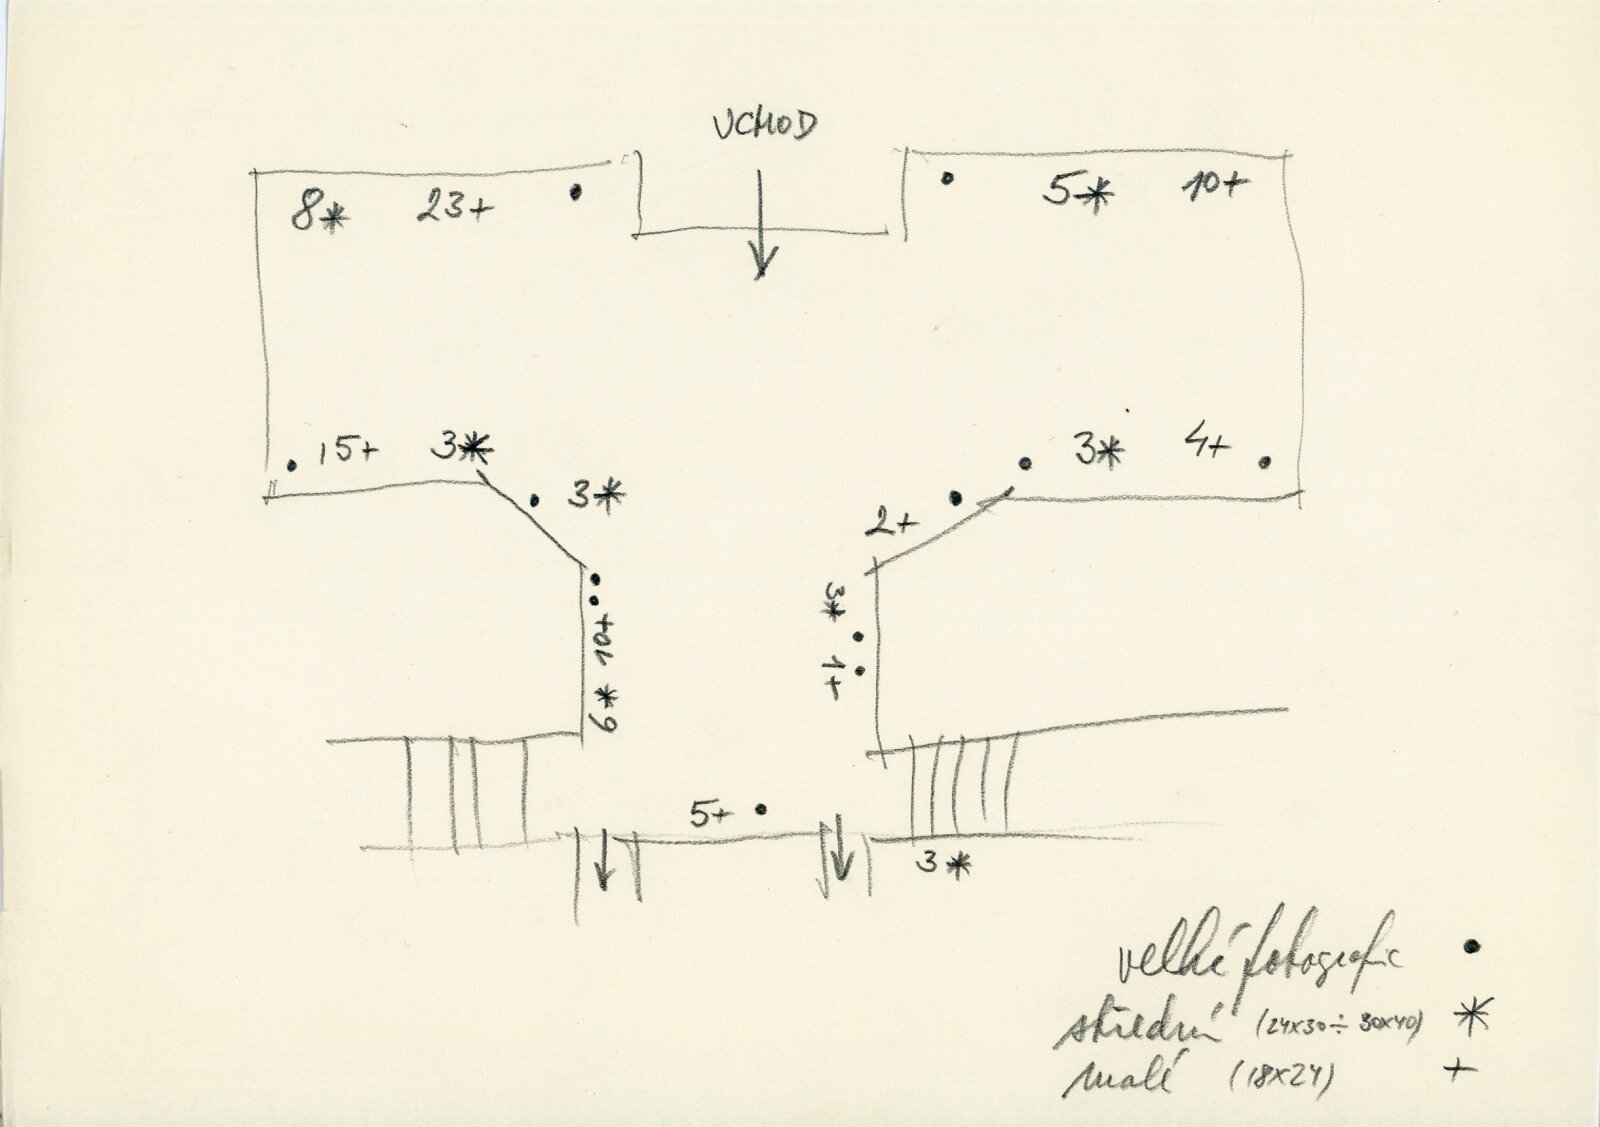 VCHOD
8* 23+ • • 5* 10+
• 15+ 3* • 3* 4+ •
• 3* • 2+
• • 10+ 6*
3* • 1+ •
5+ •
3*
velké fotografie •
střední (24x30÷30x40) *
malé (18x24) +